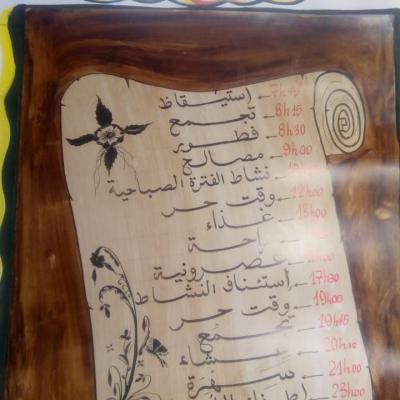 7h45 ← استيقاظ
8h15 ← تجمع
8h30 ← فطور
9h00 ← مصالح
نشاط الفترة الصباحية
12h00 ← وقت حر
غذاء
راحة
عصرونية
17h30 ← إستئناف النشاط
19h00 ← وقت حر
19h15 ← تجمع
20h00 ← عشاء
21h00 ← سهرة
23h00